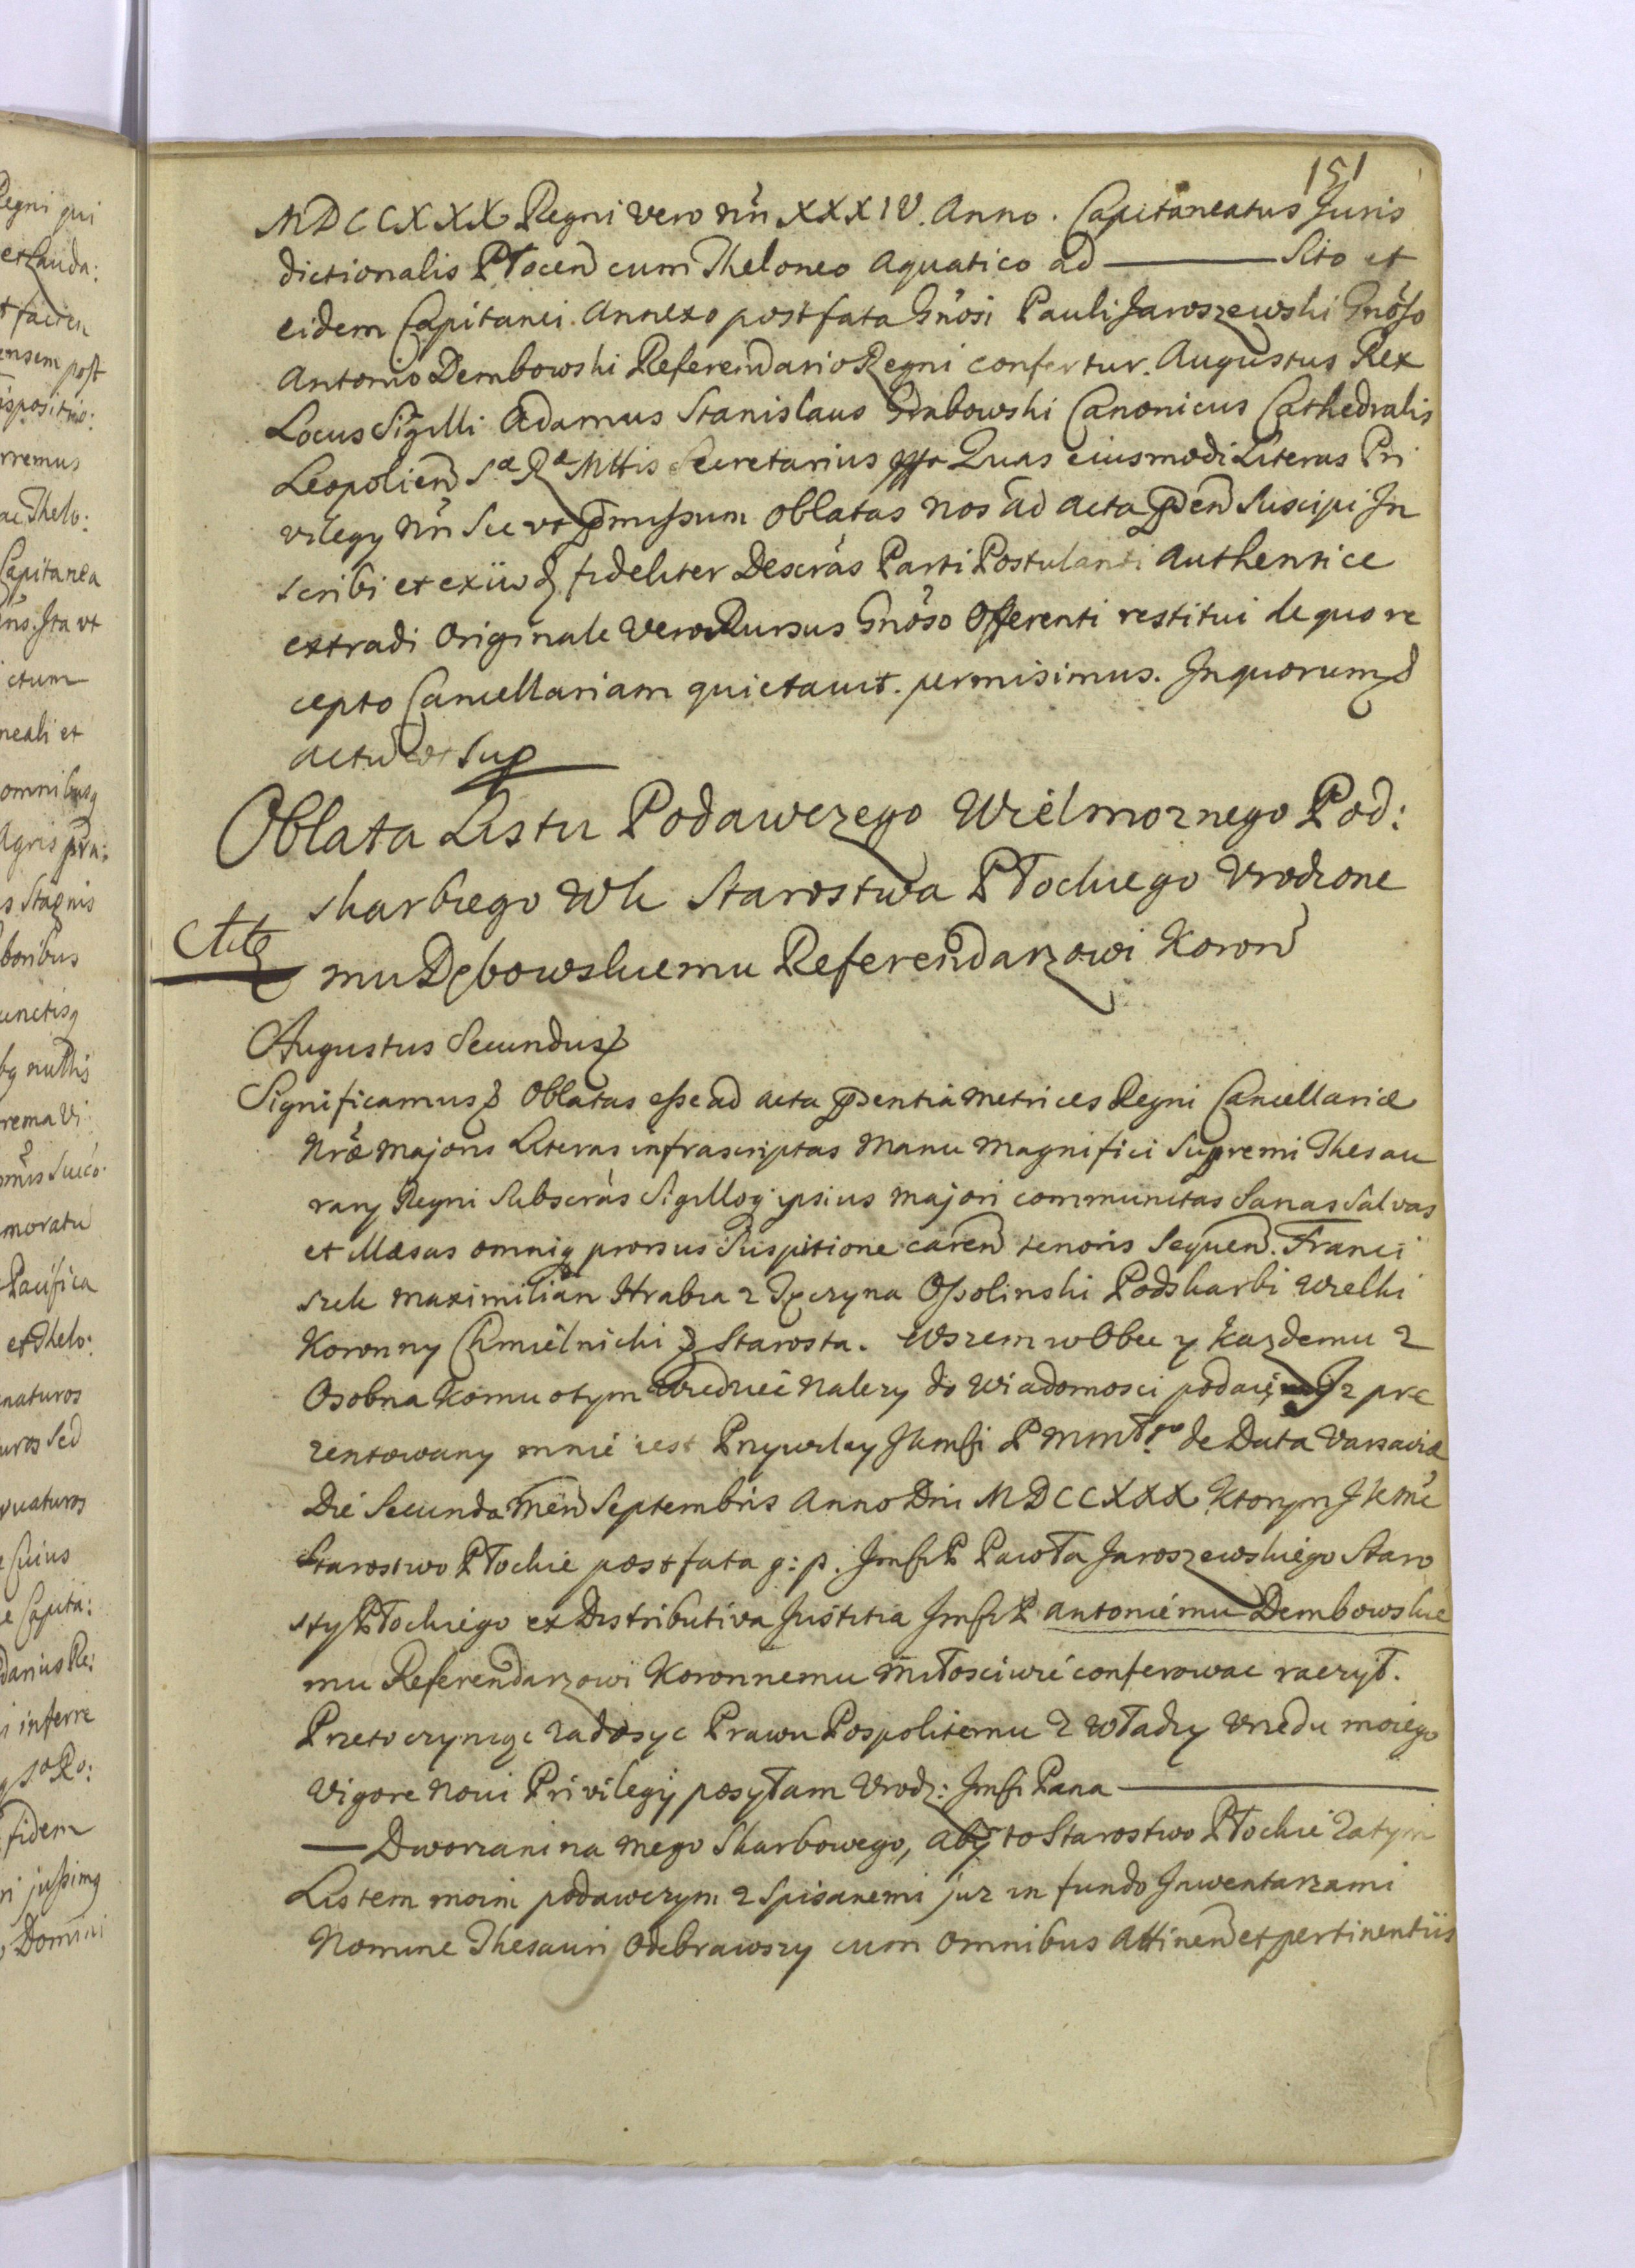 151
MDCCXXX Regni vero nri XXXIV. Anno. Capitaneatus Juris
dictionalis Płocen cum Theloneo Aquatico ad ——— Sito et
eidem Capitanei. Annexo post fata Gnosi Pauli Jaroszewski Gnoso
Antonio Dembowski Referendario Regni confertur. Augustus Rex
Locus Sigilli Adamus Stanislaus Grabowski Canonicus Cathedralis
Leopolien S.æ R.æ Mttis Secretarius Quas eiusmodi Literas Pri
vilegy nri Sic vt pmissum Oblatas nos ad acta pden Suscipi In
scribi et ex iis fideliter Descras Parti Postulanti Authentice
extradi Originale vero Rursus Gnoso Offerenti restitui de quo re
cepto Cancellariam quietauit. permisimus. In quorum
actu vt Sup
Oblata Listu Podawczego Wielmoznego Pod:
skarbiego Wk Starostwa Płockiego Vrodzone
mu Dębowskiemu Referendarzowi Koron
Augustus Secundus
Significamus Oblatas esse ad acta pdentia Metrices Regni Cancellariæ
Nræ Majoris Literas infrascriptas Manu Magnifici Supremi Thesau
rarij Regni Subscras Sigilloq ipsius majori communitas Sanas Salvas
et Illæsas omniq prorsus Suspitione caren tenoris Sequen. Franci
szek Maximilian Hrabia z Tęczyna Ossolinski Podskarbi Wielki
Koronny Chmielnicki Starosta. Wszem w Obec y kazdemu z
Osobna komu o tym Wiedziec nalezy do wiadomosci podaię Iz pre
zentowany mnie iest Przywiley JKmsci P MmMgo de Data Varsaviæ
Die Secunda men Septembris Anno Dni MDCCXXX Ktorym JKmc
Starostwo Płockie post fata g: p. Jmsci P Pawła Jaroszewskiego Staro
sty Płockiego ex Distributiva Justitia Jmsci P. Antoniemu Dembowskie
mu Referendarzowi Koronnemu miłosciwie conferowac raczył.
Przeto czyniąc zadosyc Prawu Pospolitemu z władzy Vrzedu moiego
vigore novi Privilegij posyłam Vrodz: Jmsci Pana ———
— Dworzanina mego Skarbowego, aby to Starostwo Płockie za tym
Listem moim podawczym z Spisanemi juz in fundo Inwentarzami
Nomine Thesauri Odebrawszy cum omnibus Attinen et pertinentiis